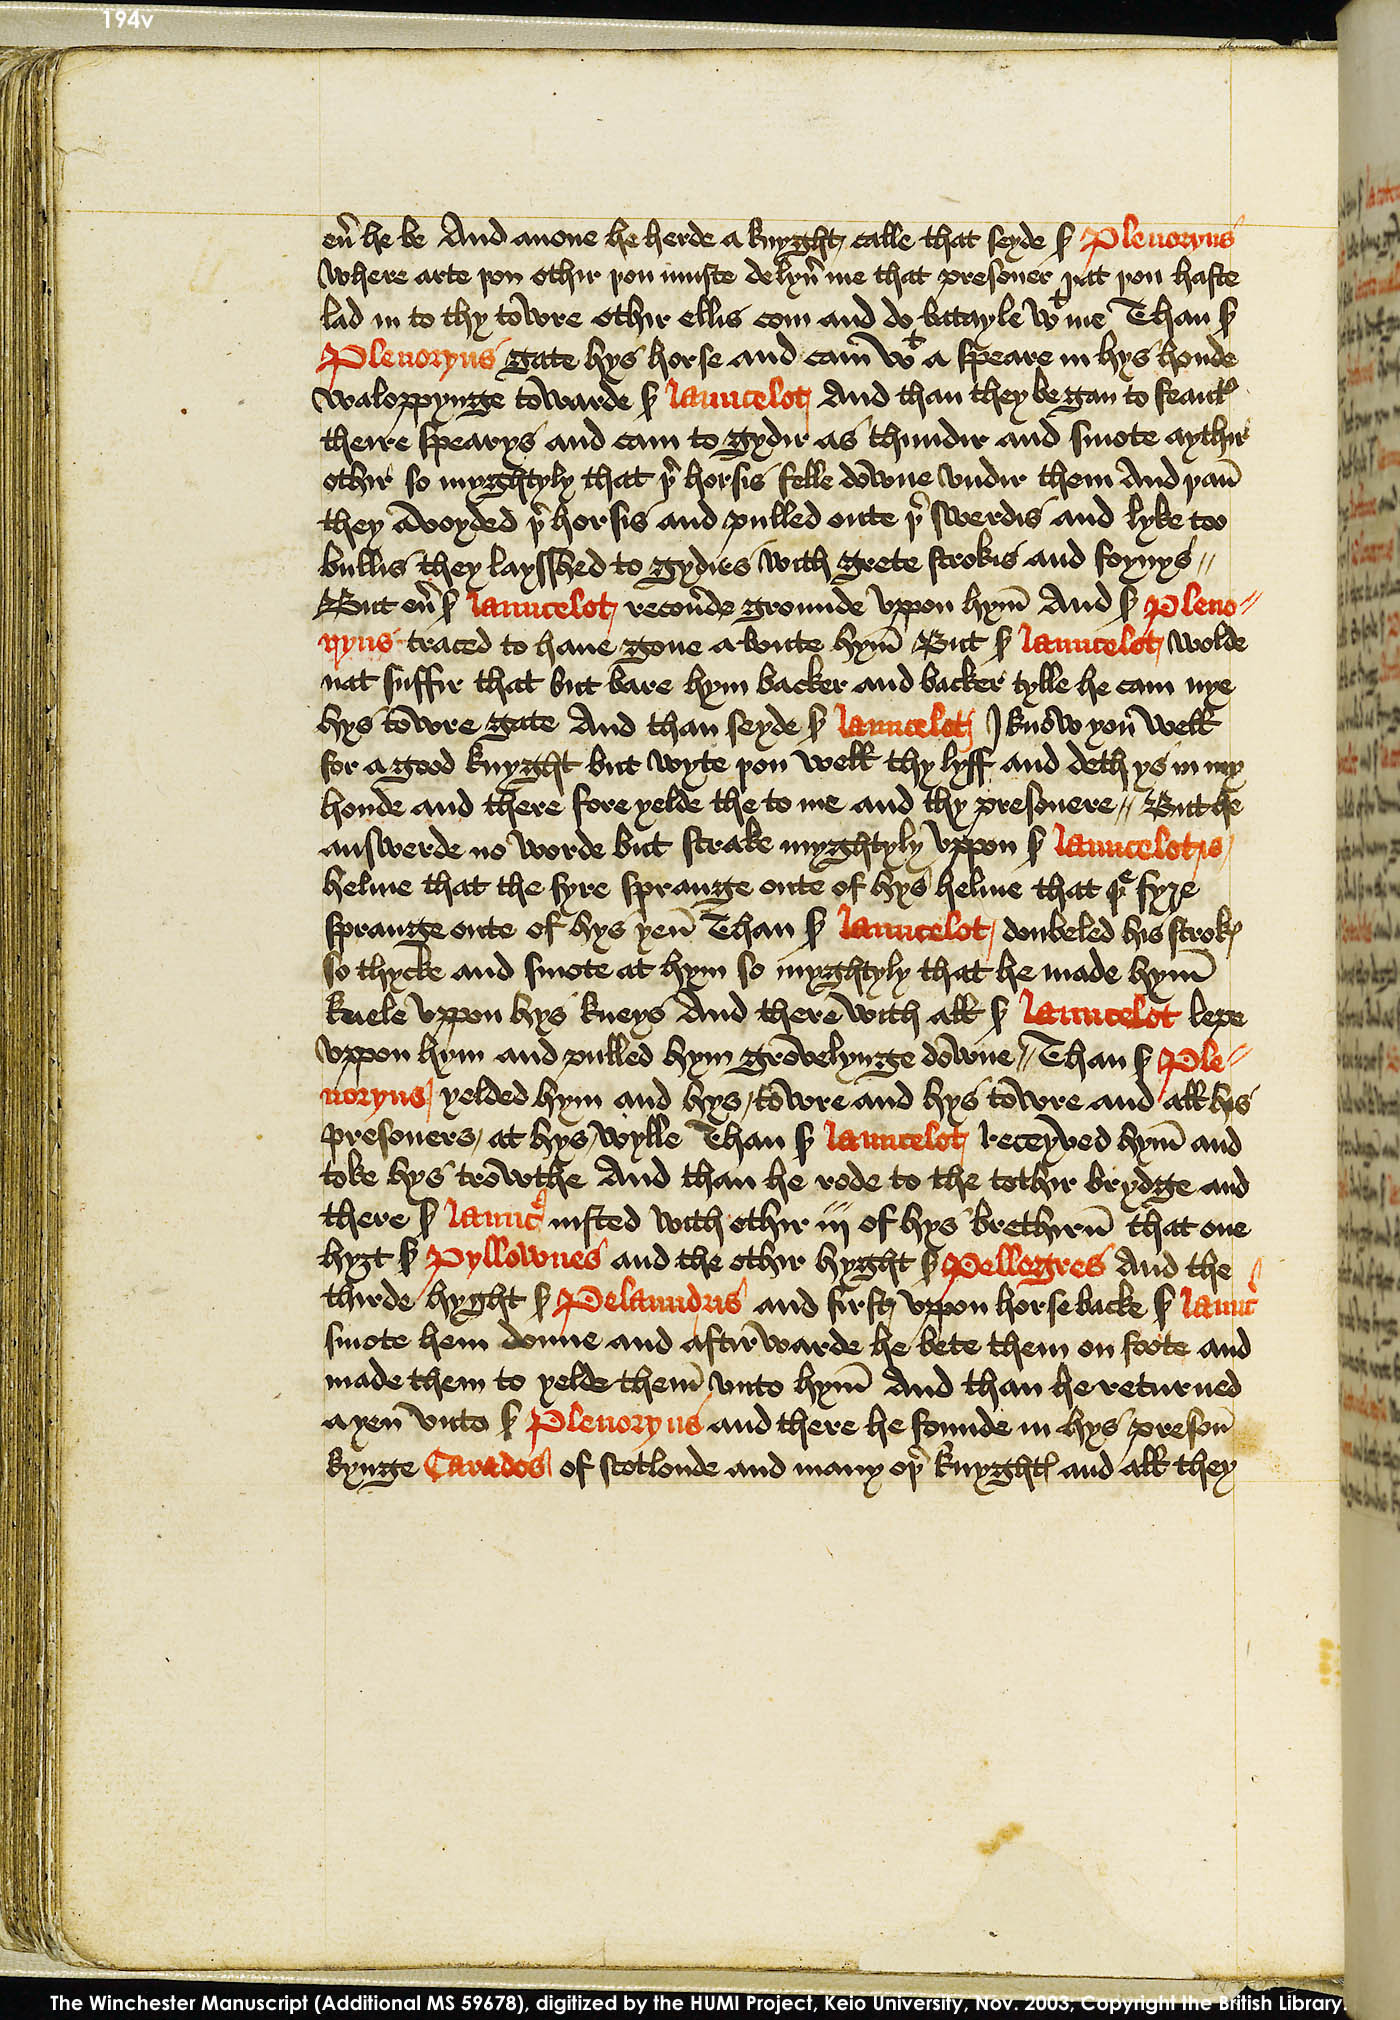 194v
eu̅ he be And anone he herde a knyght calle that seyde s̛ Plenoryus
where arte þou othir þou muste delyu̅ me that presoner þat þou haste
lad in to thy towre othir ellis com and do batayle wᵗ me Than s̛
Plenoryus gate hys horse and cam wᵗ a speare in hys honde
waloppynge towarde s̛ launcelot And than they be gan to feautᷣ
theire spearys and cam to gydir as thundir and smote aythir
othir so myghtyly that þᷣ horsis felle downe vndir them And þan̄
they avoyded þᷣ horsis and pulled oute þᷣ swerdis and lyke too
bullis they laysshed to gydirs with grete strokis and foynys //
But eu̅ s̛ launcelot recou̅de grounde vppon hym̄ And s̛ Pleno//
ryus traced to haue gone a boute hym̄ But s̛ launcelot wolde
nat suffir that but bare hym backer and backer tylle he cam nye
hys towre gate And than seyde s̛ launcelot I know þou well
for a good knyght but wyte þou well thy lyff and deth ys in my
honde and there fore yelde the to me and thy presonere // But he
answerde no worde but strake myghtyly vppon s̛ launcelotis
helme that the fyre sprange oute of hys helme that þᵉ fyre
sprange oute of hys yen̄ Than s̛ launcelot doubeled his strokꝭ
so thycke and smote at hym so myghtyly that he made hym̄
knele vppon hys kneys And there with all s̛ launcelot lepe
vppon hym and pulled hym grovelynge downe // Than s̛ Ple//
noryus yelded hym and hys towre and hys towre and all his
presoners at hys wylle Than s̛ launcelot receyved hym̄ and
toke hys trowthe And than he rode to the tothir brydge and
there s̛ launcᷣ iusted with othir iij of hys brethirn̄ that one
hyȝt s̛ Pyllownes and the othir hyght s̛ Pellogres And the
thirde hyght s̛ Pelaundris and first vppon horse backe s̛ launcᷣ
smote hem doune and aftirwarde he bete them on foote and
made them to yelde them̄ vnto hym̄ And than he returned
ayen̄ vnto s̛ Plenoryus and there he founde in hys preson̄
kynge Carados of scotlonde and many oþᷣ knyghtꝭ and all they
The Winchester Manuscript (Additional MS 59678), digitized by the HUMI Project, Keio University, Nov. 2003, Copyright the British Library.